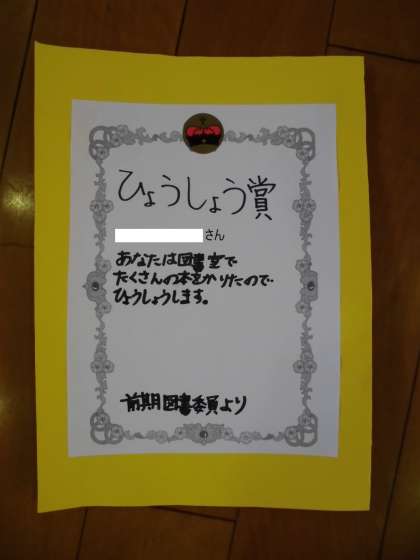 ひょうしょう賞
さん
あなたは図書室で
たくさんの本をかりたので
ひょうしょうします。
前期図書委員より